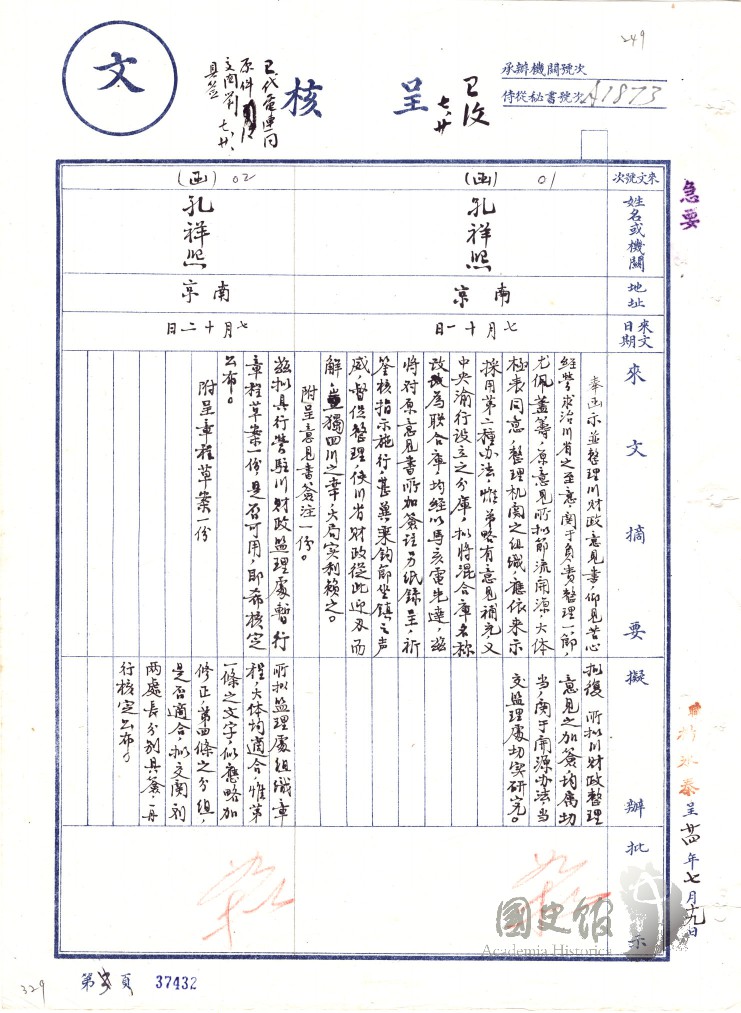 249
承辦機關號次
侍從秘書號次 A1873
呈核
文
已復
七、廿
已代電連同
原件
七、廿、
具簽
急要
來文號次
姓名或機關
地址
來文日期
來文摘要
擬辦
批示
01
(函)
孔祥熙
南京
七月十一日
奉函示並整理川財政意見書,仰見苦心
經營求治川省之至意,關于負責整理一節,
尤佩藎籌,原意見所拟節流開源,大体
極表同意,整理机關之組織,應依來示
採用第二種办法,惟弟略有意見補充又
中央渝行設立之分庫,拟將混合庫名称
改為联合庫,均經以馬亥電先達,茲
將对原意見書所加簽註另紙錄呈,祈
鉴核指示施行,甚冀秉鈞節坐鎮之声
威,督促整理,使川省財政從此迎刃而
解,豈獨四川之幸,大局实利賴之。
附呈意見書簽注一份。
拟復 所拟川財政整理
意見之加簽均屬切
当,關于開源办法,当
交監理處切实研究。
02
(函)
孔祥熙
南京
七月十二日
茲拟具行營駐川財政監理處暫行
章程草案一份,是否可用,耶希核定
公布。
附呈章程草案一份
所拟監理處組織章
程,大体均適合,惟第
一條之文字,似應略加
修正,第四條之分組,
是否適合,拟交關刘
兩處長分別具簽,再
行核定公布。
呈 廿四年七月十九日
國史館
Academia Historica
第 頁 37432
329